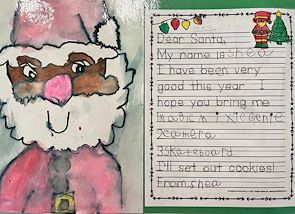 Dear Santa,
My name is Shea
I have been very
good this year. I
hope you bring me
magicm
2camera
3skateboard
I'll set out cookies!
From, shea